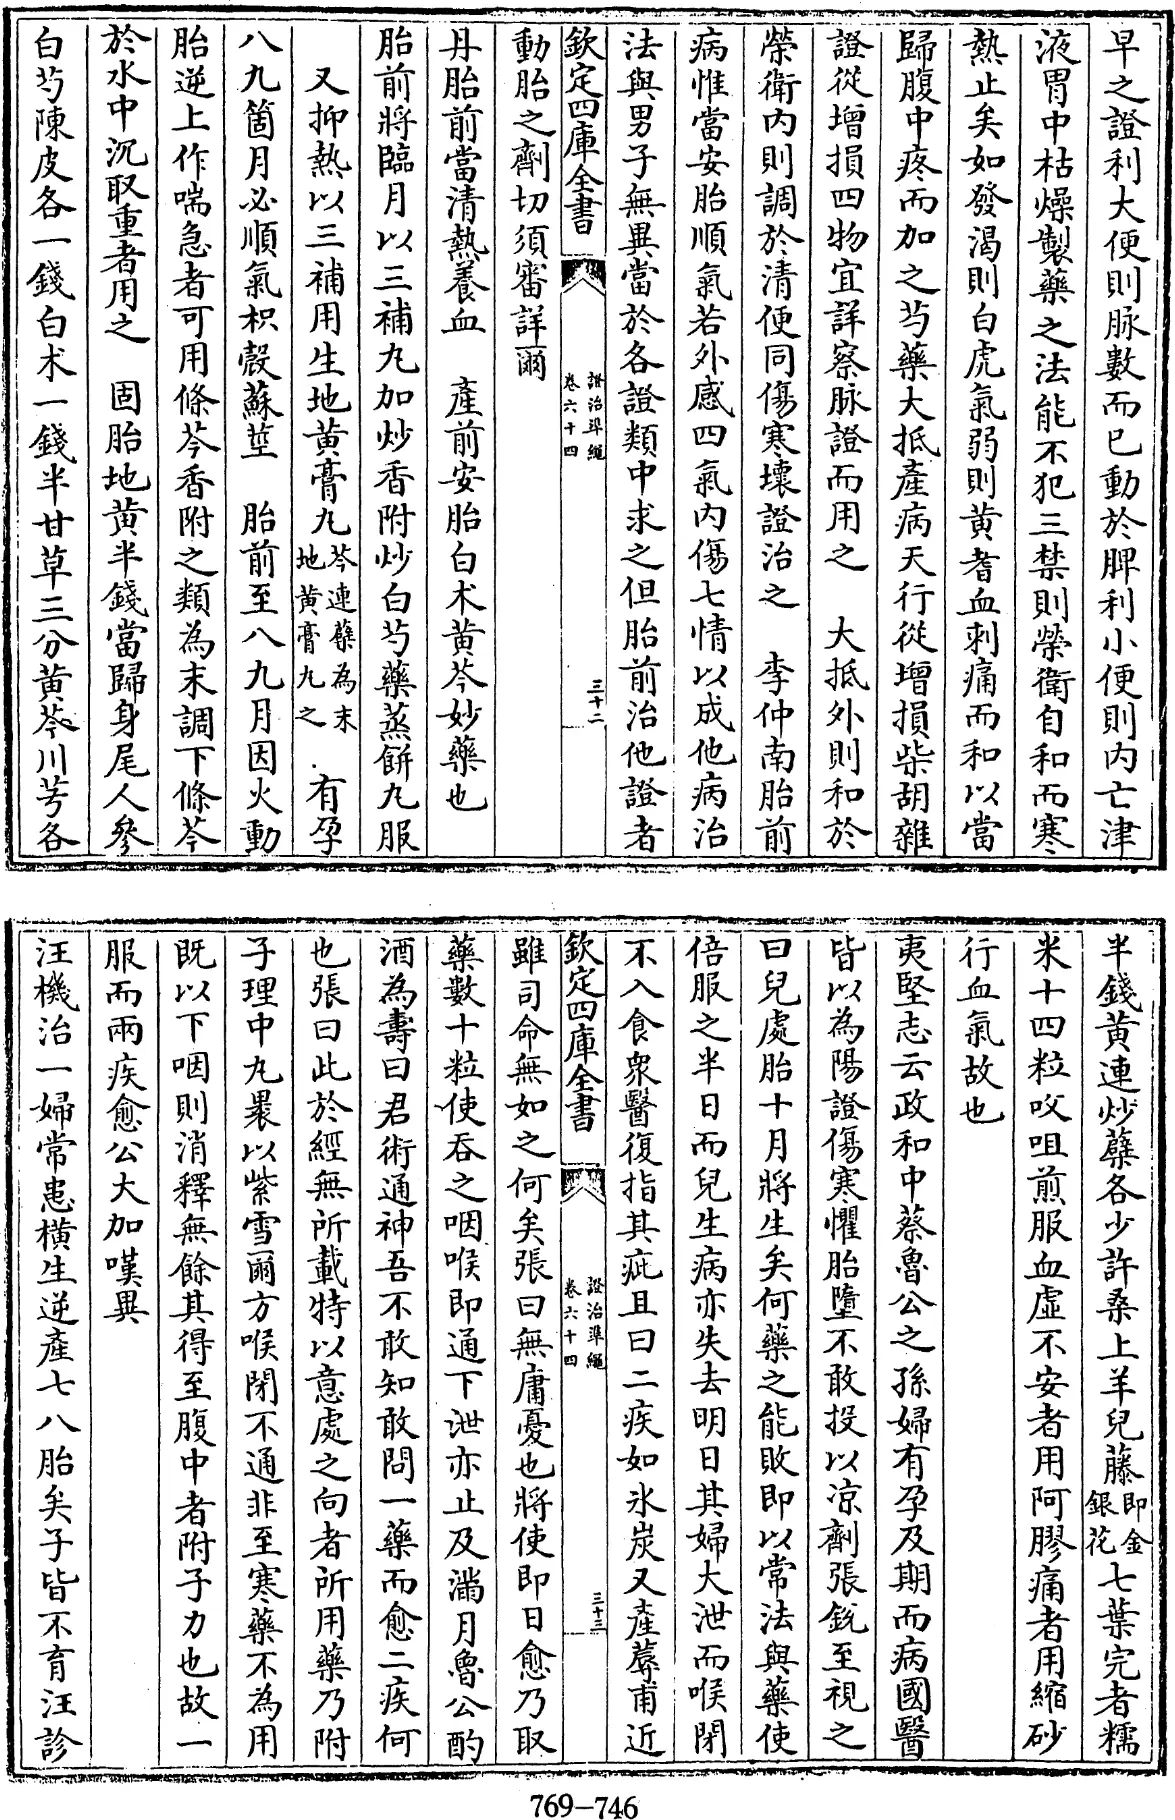 早之證利大便則脉數而已動於脾利小便則内亡津
液胃中枯燥製藥之法能不犯三禁則榮衛自和而寒
熱止矣如發渴則白虎氣弱則黄耆血刺痛而和以當
歸腹中疼而加之芍藥大抵產病天行從增損柴胡雜
證從增損四物宜詳察脉證而用之　大抵外則和於
榮衛内則調於清便同傷寒壞證治之　李仲南胎前
病惟當安胎順氣若外感四氣内傷七情以成他病治
法與男子無異當於各證類中求之但胎前治他證者
欽定四庫全書
證治準繩
卷六十四
三十二
動胎之劑切須審詳爾
丹胎前當清熱養血　產前安胎白术黄芩妙藥也
胎前將臨月以三補丸加炒香附炒白芍藥蒸餅丸服
又抑熱以三補用生地黄膏丸芩連蘗為末地黄膏丸之　有孕
八九箇月必順氣枳殻蘇莖　胎前至八九月因火動
胎逆上作喘急者可用條芩香附之類為末調下條芩
於水中沉取重者用之　固胎地黄半錢當歸身尾人參
白芍陳皮各一錢白术一錢半甘草三分黄芩川芎各
半錢黄連炒蘗各少許桑上羊兒藤即金銀花七葉完者糯
米十四粒㕮咀煎服血虛不安者用阿膠痛者用縮砂
行血氣故也
夷堅志云政和中蔡魯公之孫婦有孕及期而病國醫
皆以為陽證傷寒懼胎墮不敢投以凉劑張銳至視之
曰兒處胎十月將生矣何藥之能敗即以常法與藥使
倍服之半日而兒生病亦失去明日其婦大泄而喉閉
不入食衆醫復指其疵且曰二疾如氷炭又產蓐甫近
欽定四庫全書
證治準繩
卷六十四
三十三
雖司命無如之何矣張曰無庸憂也將使即日愈乃取
藥數十粒使吞之咽喉即通下泄亦止及滿月魯公酌
酒為壽曰君術通神吾不敢知敢問一藥而愈二疾何
也張曰此於經無所載特以意處之向者所用藥乃附
子理中丸裹以紫雪爾方喉閉不通非至寒藥不為用
既以下咽則消釋無餘其得至腹中者附子力也故一
服而兩疾愈公大加嘆異
汪機治一婦常患横生逆產七八胎矣子皆不育汪診
769-746